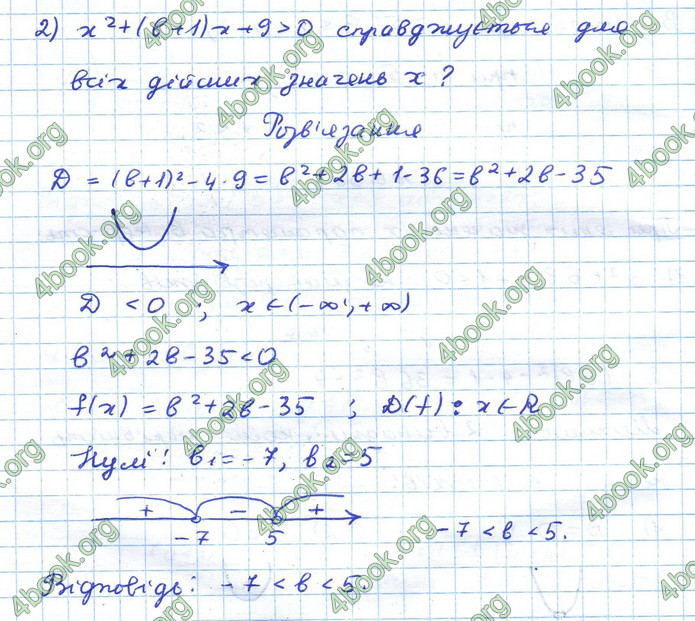 2) x² + (в+1)x + 9 > 0 справджується для
всіх дійсних значень x?
Розв'язання
D = (в+1)² - 4·9 = в² + 2в + 1 - 36 = в² + 2в - 35
D < 0 ; x ∈ (-∞; +∞)
в² + 2в - 35 < 0
f(x) = в² + 2в - 35 ; D(f): x ∈ R
Нулі: в₁ = -7, в₂ = 5
+ - +
-7 5 -7 < в < 5.
Відповідь: -7 < в < 5.
4book.org